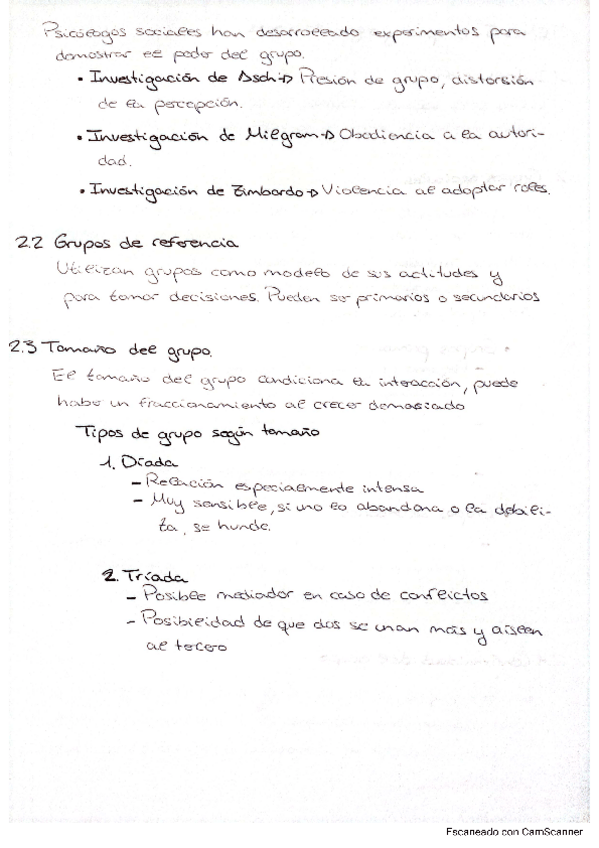 Psicólogos sociales han desarrollado experimentos para
demostrar el poder del grupo.
• Investigación de Asch → Presión de grupo, distorsión
de la percepción.
• Investigación de Milgram → Obediencia a la autori-
dad.
• Investigación de Zimbardo → Violencia al adoptar roles.
2.2 Grupos de referencia
Utilizan grupos como modelo de sus actitudes y
para tomar decisiones. Pueden ser primarios o secundarios
2.3 Tamaño del grupo.
El tamaño del grupo condiciona la interacción, puede
haber un fraccionamiento al crecer demasiado
Tipos de grupo según tamaño
1. Díada
- Relación especialmente intensa
- Muy sensible, si uno lo abandona o la debili-
ta, se hunde.
2. Tríada
- Posible mediador en caso de conflictos
- Posibilidad de que dos se unan más y aíslen
al tercero
Escaneado con CamScanner